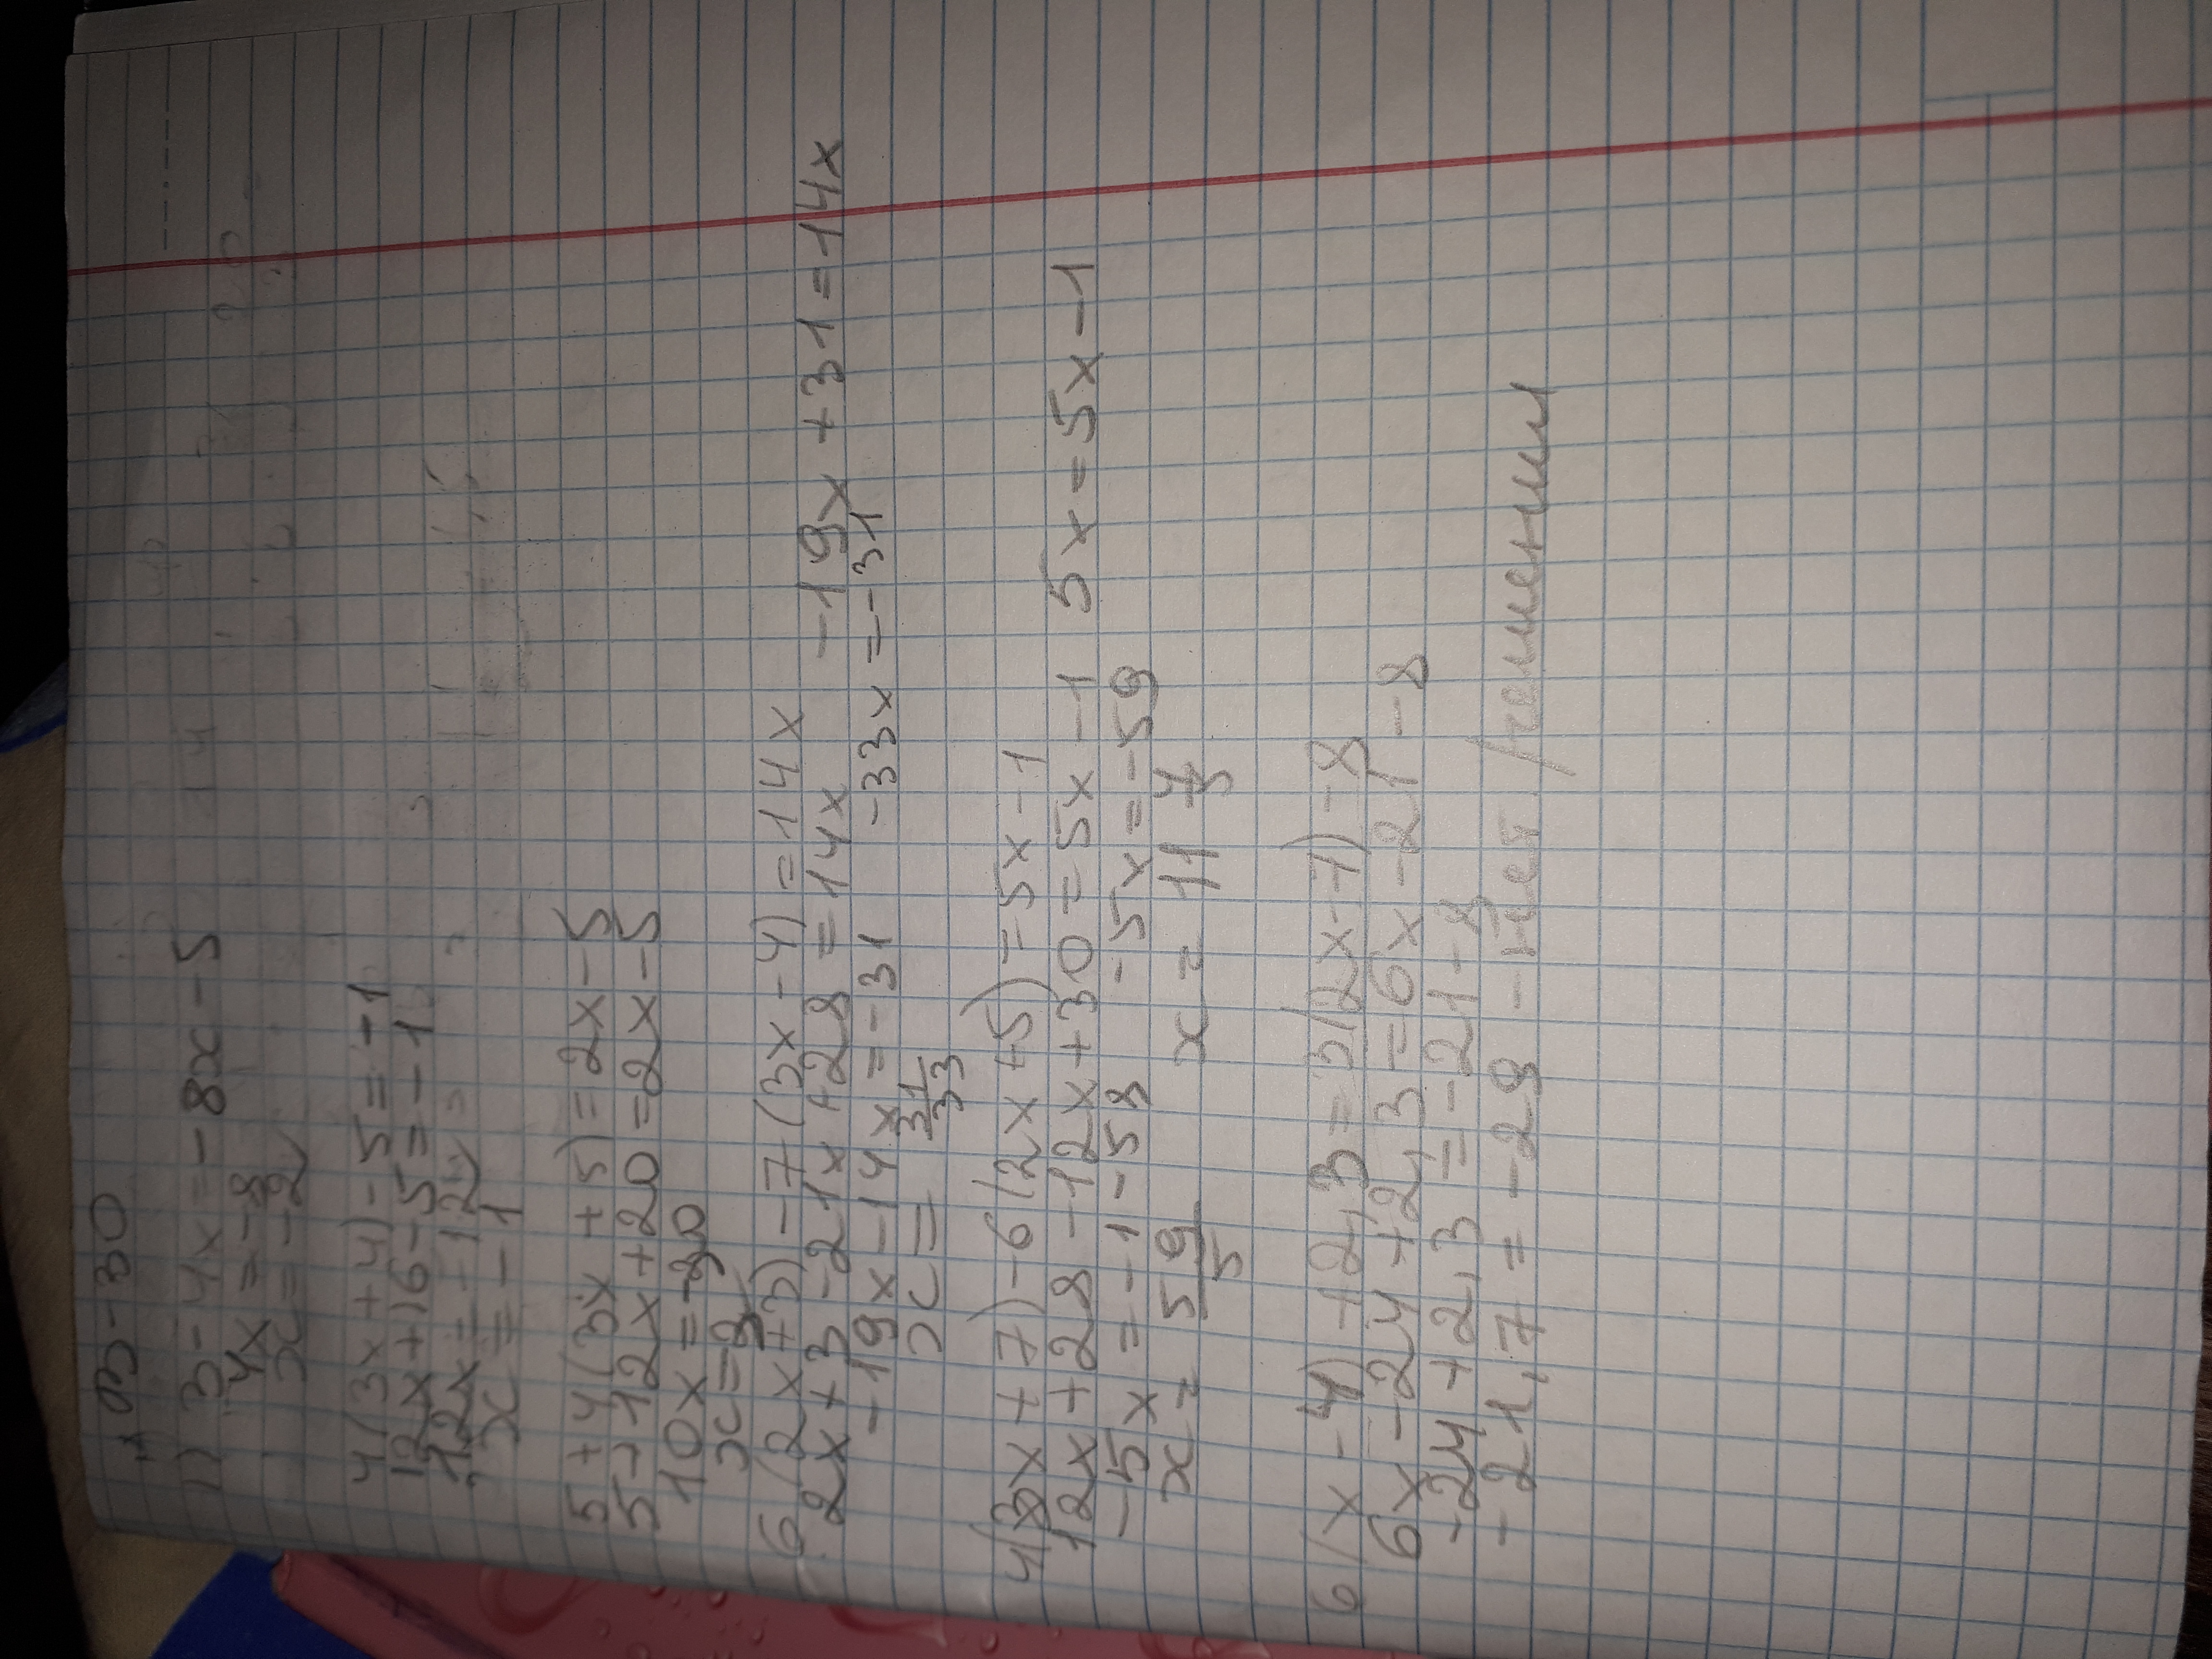 В-30
1) 3-4x=-8x-5
4x=-8
x=-2
4(3x+4)-5=-1
12x+16-5=-1
12x=-12
x=-1
5+4(3x+5)=2x-5
5+12x+20=2x-5
10x=-30
x=-3
6(2x+3)-7(3x-4)=14x
2x+3-21x+28=14x -19x+31=14x
-19x-14x=-31 -33x=-31
x= 31/33
4(3x+7)-6(2x+5)=5x-1
12x+28-12x+30=5x-1 5x=5x-1
-5x=-1-58 -5x=-59
x= 59/5 x= 11 4/5
6(x-4)+2,3=3(2x-7)-8
6x-24+2,3=6x-21-8
-24+2,3=-21-8
-21,7=-29 -нет решении